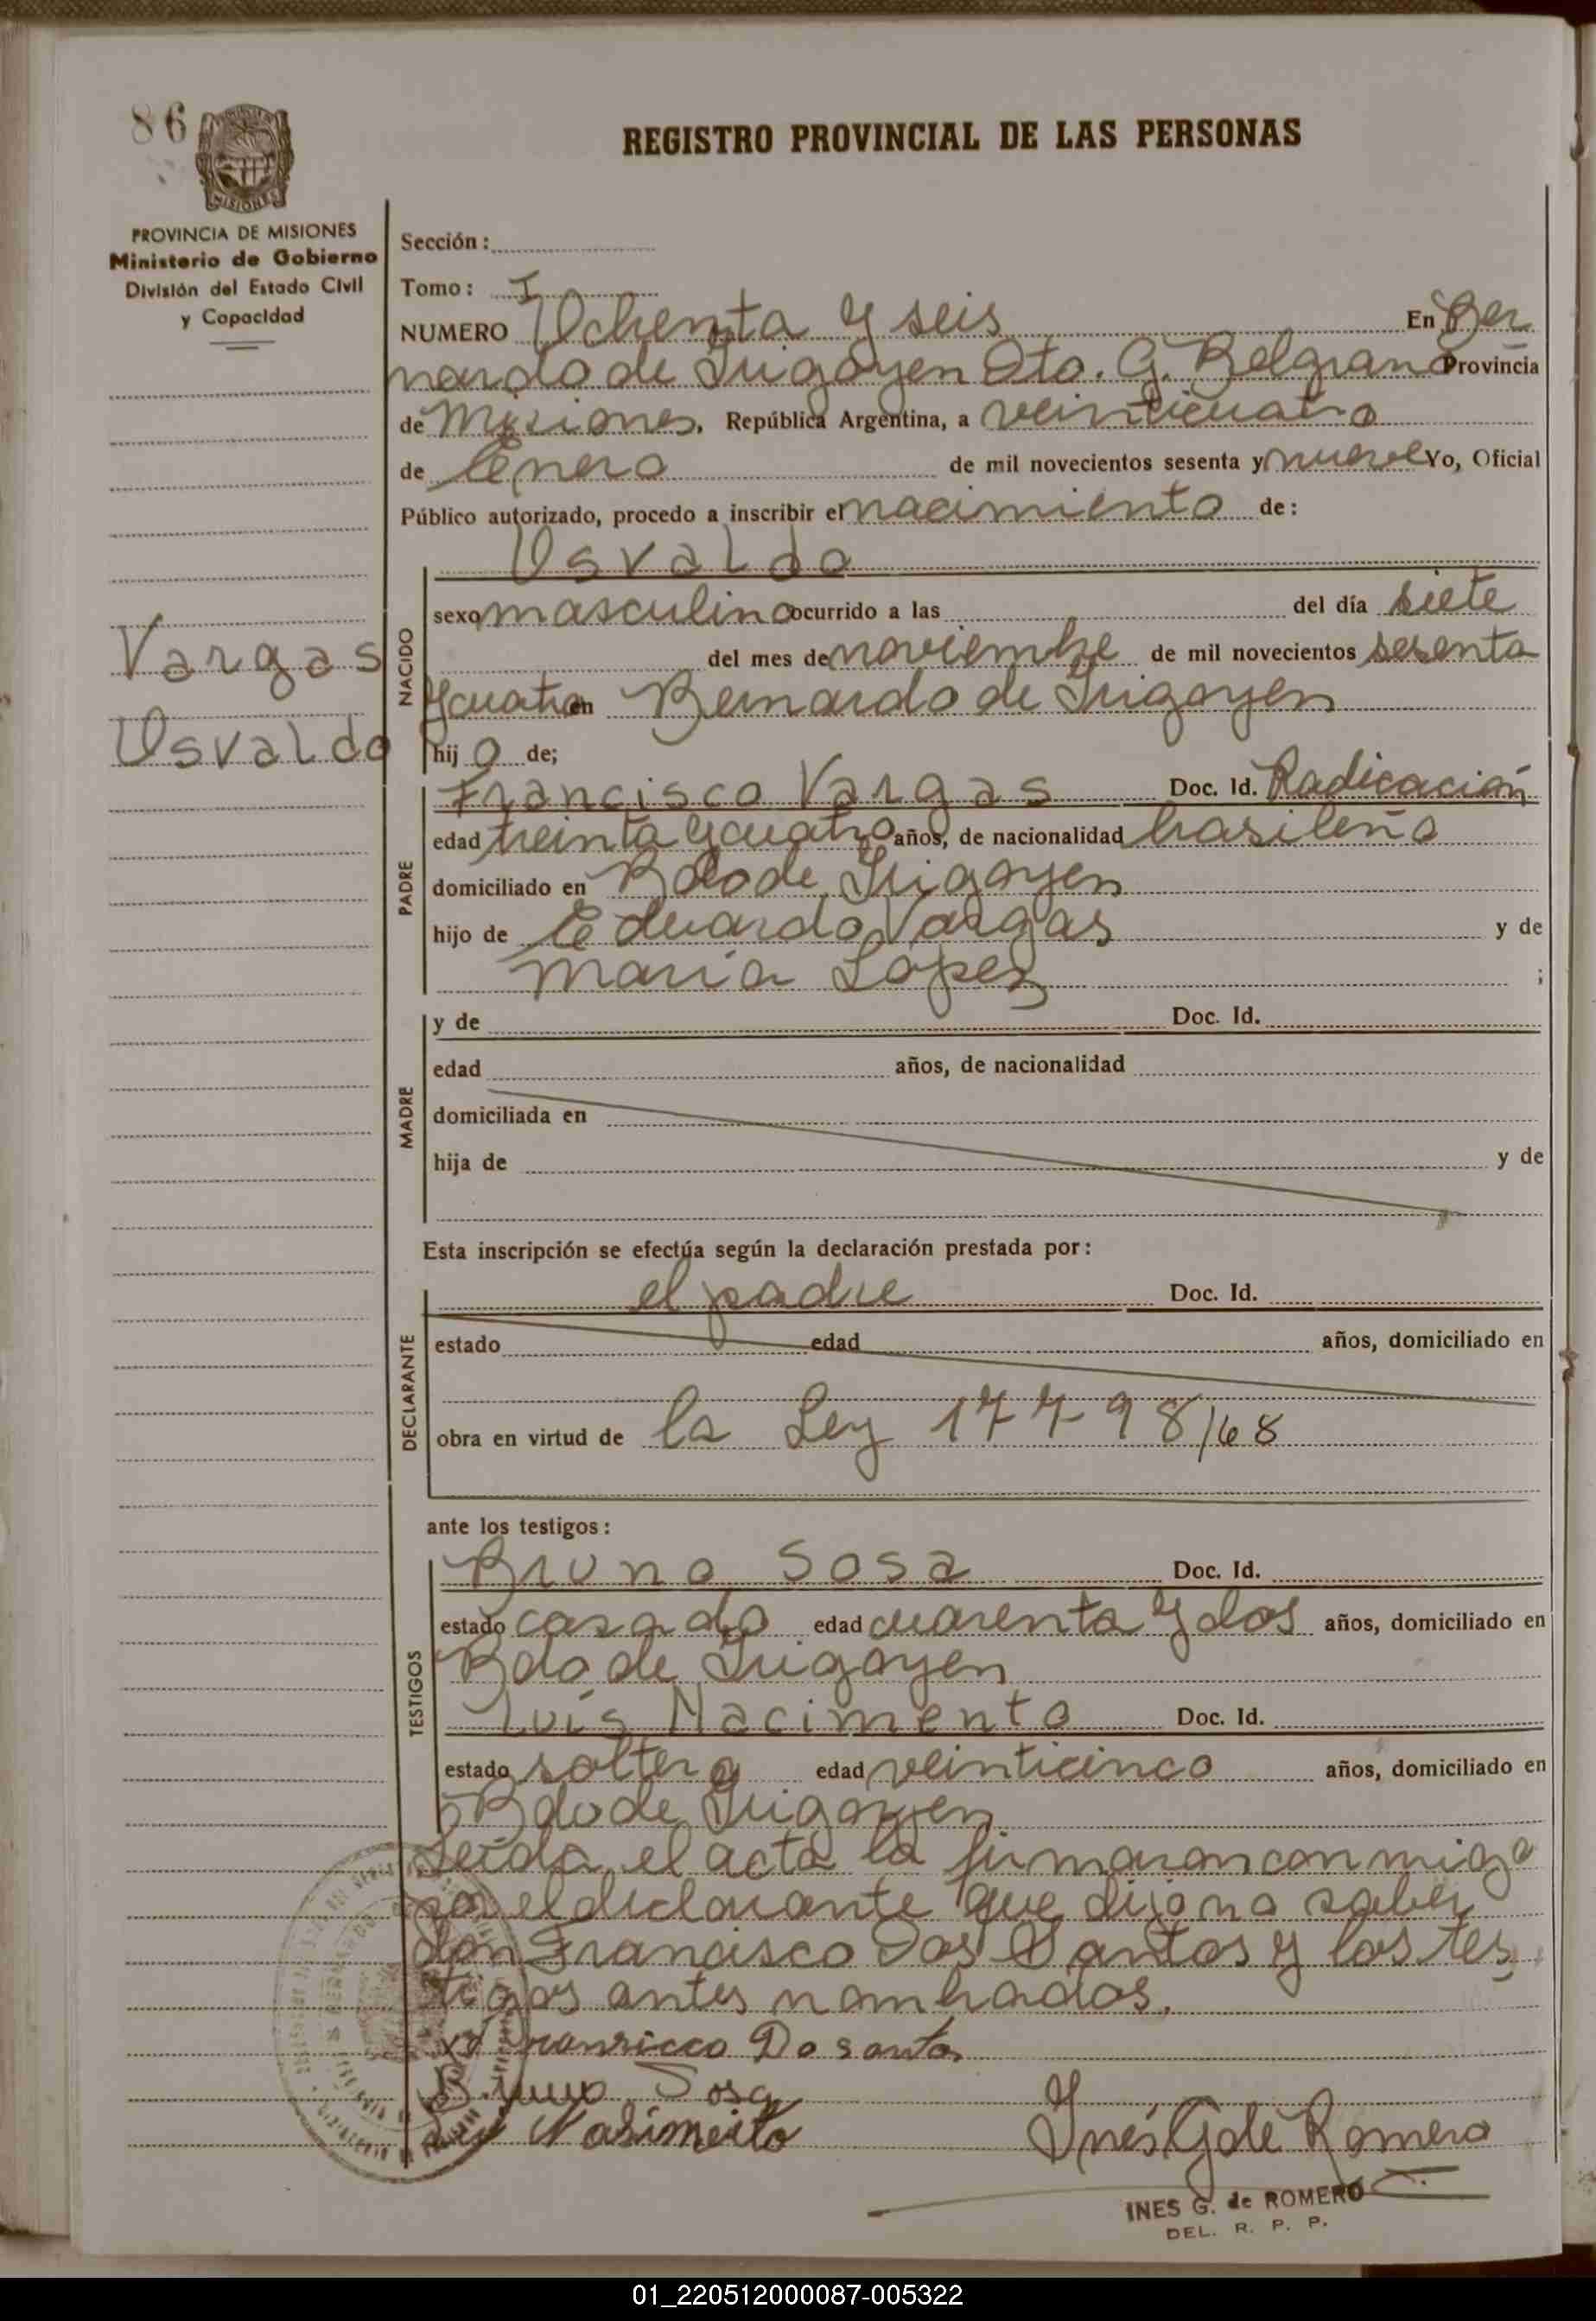 86
REGISTRO PROVINCIAL DE LAS PERSONAS
MISIONES
PROVINCIA DE MISIONES
Ministerio de Gobierno
División del Estado Civil
y Capacidad
Sección:
Tomo: I
NUMERO Ochenta y seis En Ber
nardo de Irigoyen Dto. G. Belgrano Provincia
de Misiones, República Argentina, a veinticuatro
de Enero de mil novecientos sesenta y nueve Yo, Oficial
Público autorizado, procedo a inscribir el nacimiento de:
Osvaldo
NACIDO
sexo masculino ocurrido a las del día siete
Vargas
del mes de noviembre de mil novecientos sesenta
y cuatro en Bernardo de Irigoyen
Osvaldo
hijo de;
PADRE
Francisco Vargas Doc. Id. Radicación
edad treinta y cuatro años, de nacionalidad brasileña
domiciliado en Bdo de Irigoyen
hijo de Eduardo Vargas y de
Maria Lopez ;
MADRE
y de Doc. Id.
edad años, de nacionalidad
domiciliada en
hija de y de
Esta inscripción se efectúa según la declaración prestada por:
DECLARANTE
el padre Doc. Id.
estado edad años, domiciliado en
obra en virtud de la Ley 17798/68
ante los testigos:
TESTIGOS
Bruno Sosa Doc. Id.
estado casado edad cuarenta y dos años, domiciliado en
Bdo de Irigoyen
Luis Nacimento Doc. Id.
estado soltero edad veinticinco años, domiciliado en
Bdo de Irigoyen
Leida el acta la firmaron conmigo
el declarante que dijo no saber
don Francisco Dos Santos y los tes
tigos antes nombrados.
Francisco Do santos
Bruno Sosa
Luis Nasimeito
Inés G de Romero
INES G. de ROMERO
DEL. R. P. P.
01_220512000087-005322